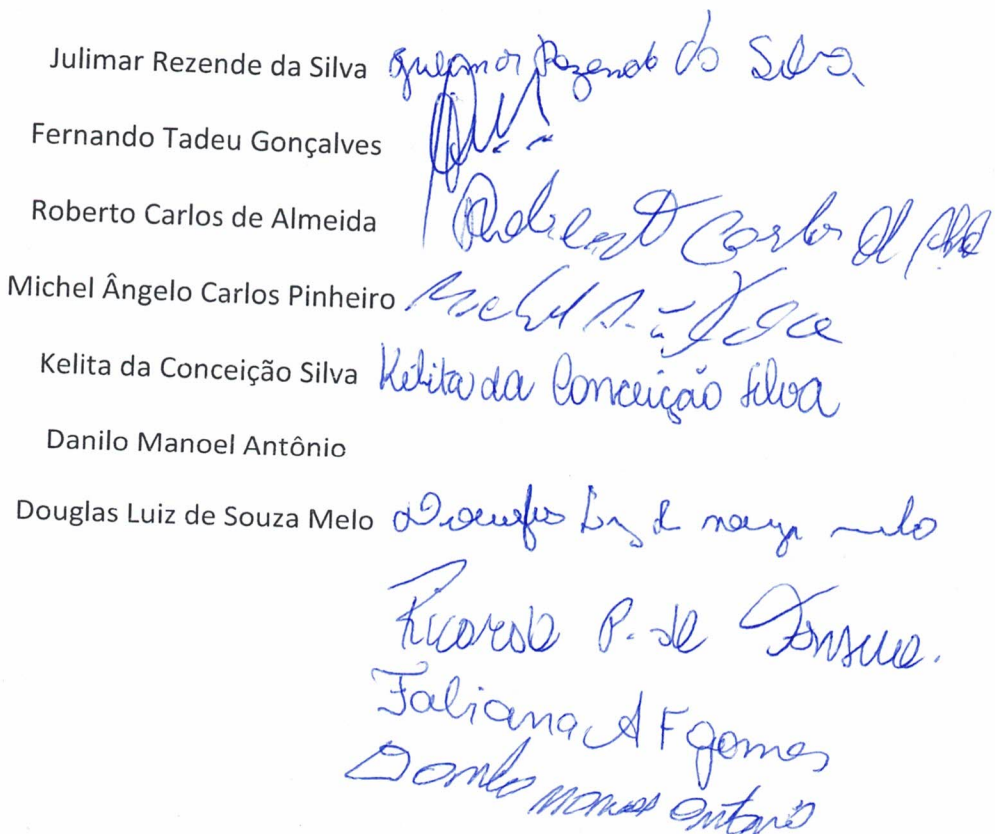 Julimar Rezende da Silva Julimar Rezende da Silva
Fernando Tadeu Gonçalves
Roberto Carlos de Almeida Roberto Carlos de
Michel Ângelo Carlos Pinheiro Michel
Kelita da Conceição Silva Kelita da Conceição Silva
Danilo Manoel Antônio
Douglas Luiz de Souza Melo Douglas Luiz de Souza Melo
Ricardo P. de Fonseca.
Fabiana A F gomes
Danilo Manoel Antonio